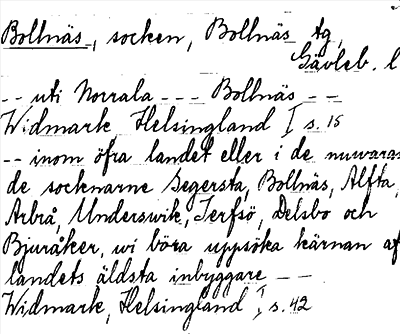 Bollnäs, socken, Bollnäs tg,
Gävleb. l
-- uti Norrala --- Bollnäs --
Widmark Helsingland I s. 15
-- inom öfra landet eller i de nuvaran
de socknarne Segersta, Bollnäs, Alfta,
Arbrå, Underswik, Jerfsö, Delsbo och
Bjuråker, wi böra uppsöka kärnan af
landets äldsta inbyggare --
Widmark, Helsingland I, s. 42